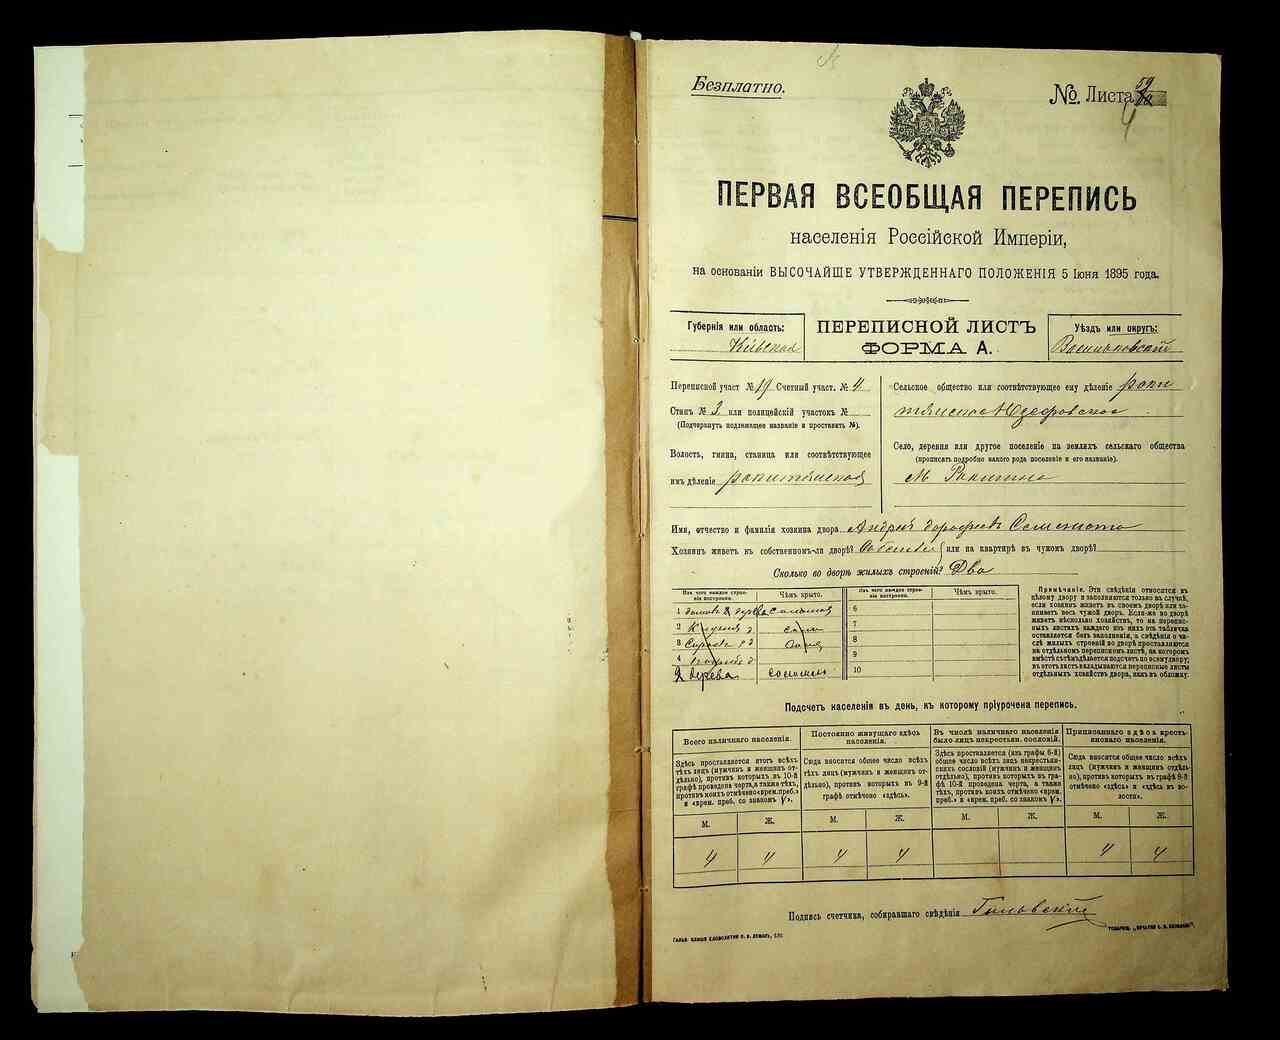 Безплатно.
№ Листа 59
4
ПЕРВАЯ ВСЕОБЩАЯ ПЕРЕПИСЬ
населенія Россійской Имперіи,
на основаніи ВЫСОЧАЙШЕ УТВЕРЖДЕННАГО ПОЛОЖЕНІЯ 5 Іюня 1895 года.
Губернія или область:
Кіевская
ПЕРЕПИСНОЙ ЛИСТЪ
ФОРМА А.
Уѣздъ или округъ:
Переписной участ. № 19 Счетный участ. № 4
Станъ № 3 или полицейскій участокъ №
(Подчеркнуть подлежащее названіе и проставить №).
Волость, гмина, станица или соотвѣтствующее
имъ дѣленіе
Сельское общество или соотвѣтствующее ему дѣленіе
Село, деревня или другое поселеніе на земляхъ сельскаго общества
(прописать подробно какого рода поселеніе и его названіе).
Имя, отчество и фамилія хозяина двора Андрей
Хозяинъ живетъ въ собственномъ-ли дворѣ? или на квартирѣ въ чужомъ дворѣ?
Сколько во дворѣ жилыхъ строеній? Два
Изъ чего каждое строеніе построено.
Чѣмъ крыто.
Изъ чего каждое строеніе построено.
Чѣмъ крыто.
1
2
3
4
2 дерева
6
7
8
9
10
Примѣчаніе. Эти свѣдѣнія относятся къ
цѣлому двору и заполняются только въ случаѣ,
если хозяинъ живетъ въ своемъ дворѣ или занимаетъ
весь чужой дворъ. Если-же во дворѣ
живетъ нѣсколько хозяйствъ, то на переписныхъ
листахъ каждаго изъ нихъ эта табличка
оставляется безъ заполненія, а свѣдѣнія о числѣ
жилыхъ строеній во дворѣ проставляются
на отдѣльномъ переписномъ листѣ, на которомъ
вмѣстѣ съ тѣмъ дѣлается подсчетъ по всему двору;
въ этотъ листъ вкладываются переписные листы
отдѣльныхъ хозяйствъ двора, какъ въ обложку.
Подсчетъ населенія въ день, къ которому пріурочена перепись.
Всего наличнаго населенія.
Постоянно живущаго здѣсь населенія.
Въ числѣ наличнаго населенія было лицъ некрестьян. сословій.
Приписаннаго здѣсь крестьянскаго населенія.
Здѣсь проставляется итогъ всѣхъ
тѣхъ лицъ (мужчинъ и женщинъ отдѣльно),
противъ которыхъ въ 10-й
графѣ проведена черта, а также тѣхъ,
противъ коихъ отмѣчено «врем. преб.»
и «врем. преб. со знакомъ V».
Сюда вносится общее число всѣхъ
тѣхъ лицъ (мужчинъ и женщинъ отдѣльно),
противъ которыхъ въ 9-й
графѣ отмѣчено «здѣсь».
Здѣсь проставляется (изъ графы 6-й)
общее число всѣхъ лицъ некрестьянскихъ
сословій (мужчинъ и женщинъ
отдѣльно), противъ которыхъ въ графѣ
10-й проведена черта, а также
тѣхъ, противъ коихъ отмѣчено «врем.
преб.» и «врем. преб. со знакомъ V».
Сюда вносится общее число всѣхъ
лицъ (мужчинъ и женщинъ отдѣльно),
противъ которыхъ въ графѣ 8-й
отмѣчено «здѣсь» и «здѣсь въ волости».
М. Ж. М. Ж. М. Ж. М. Ж.
4 4 4 4 4 4
Подпись счетчика, собиравшаго свѣдѣнія